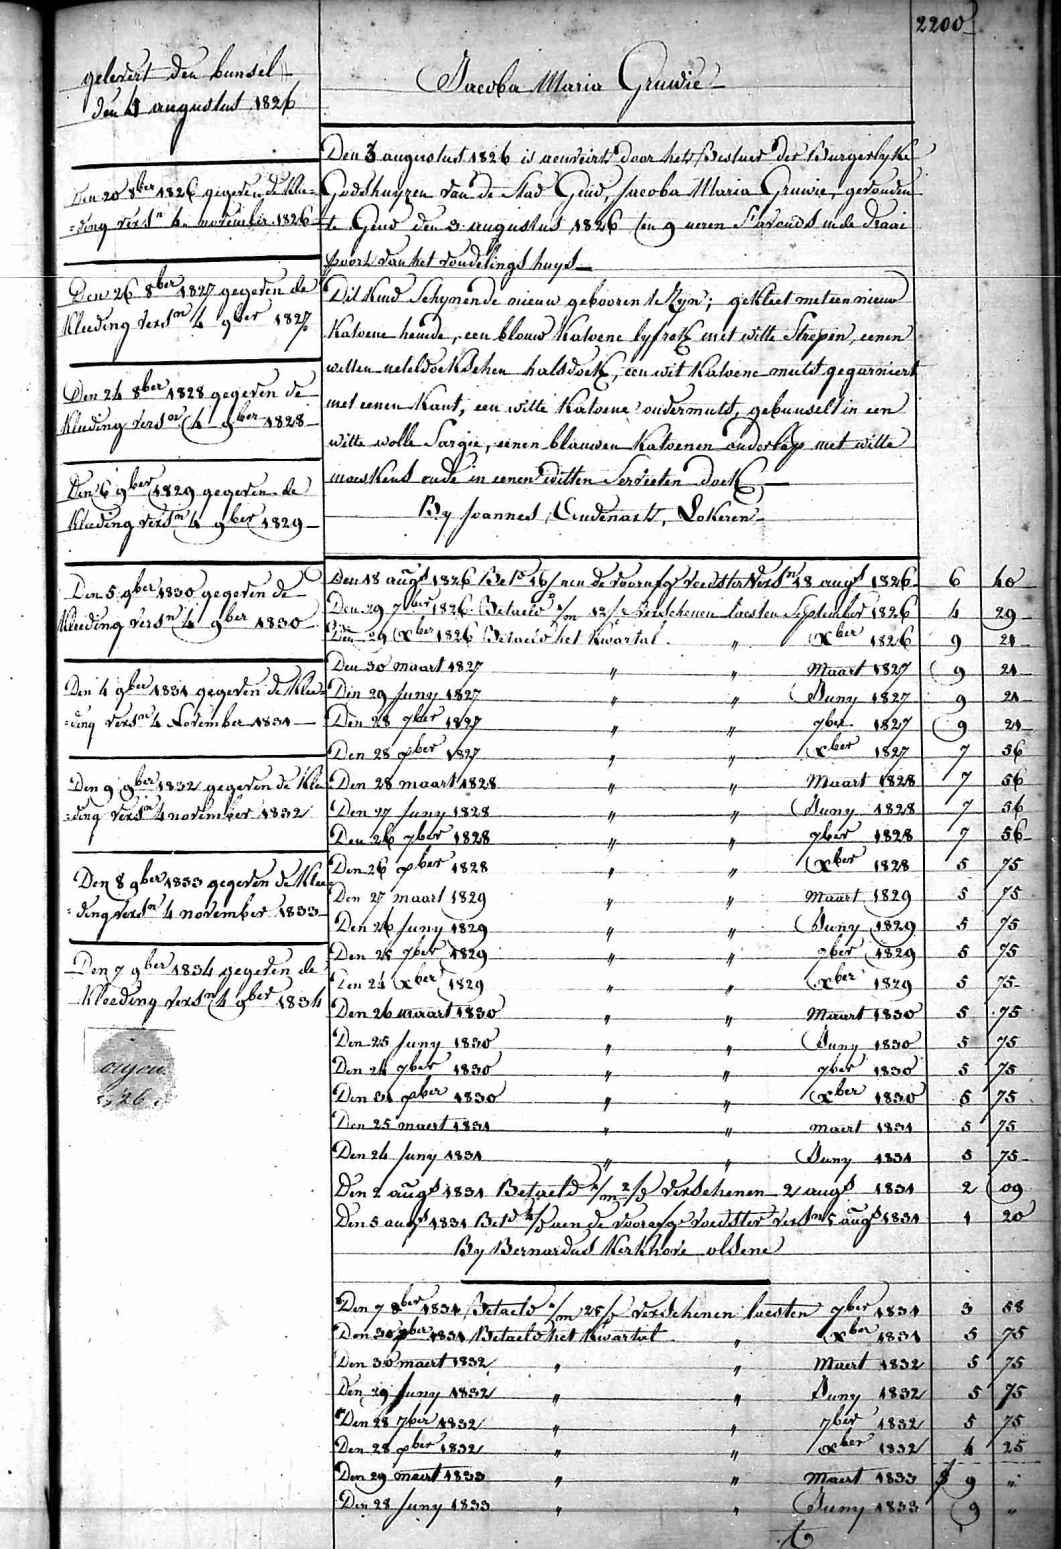 2200
gelevert den bunsel
den 4 augustus 1826
Den 20 8ber 1826 gegeven de klee=
=ding versn 4 november 1826
Den 26 8ber 1827 gegeven de
kleeding versn 4 9ber 1827
Den 24 8ber 1828 gegeven de
kleeding versn 4 9ber 1828
Den 6 9ber 1829 gegeven de
kleeding versn 4 9ber 1829
Den 5 9ber 1830 gegeven de
kleeding versn 4 9ber 1830
Den 4 9ber 1831 gegeven de klee=
=ding versn 4 November 1831
Den 9 9ber 1832 gegeven de klee
=ding versn 4 november 1832
Den 8 9ber 1833 gegeven de klee
=ding versn 4 november 1833
Den 7 9ber 1834 gegeven de
kleeding versn 4 9ber 1834
Jacoba Maria Gruwie
Den 3 augustus 1826 is aenveirt door het Bestuer der Burgerlyke
Godshuyzen van de Stad Gend, Jacoba Maria Gruwie, gevonden
te Gend den 3 augustus 1826 ten 9 ueren S'avonds in de draai
poort van het vondelings huys
Dit Kind Schynende nieuw gebooren te Zyn; gekleet met een nieuw
Katoene hemde, een blouw Katoene lyfrok met witte Strepen, eenen
witten neteldoekschen halsdoek, een wit Katoene muts gegarniert
met eenen Kant, een witte Katoene ondermuts, gebunselt in een
witte wolle Sargie, eenen blauwen Katoenen onderlap met witte
moeskens ende in eenen witten Servieten doek
By Joannes Audenaert, Lokeren
Den 18 augs 1826 Bet 16/ aen de voornfg voedster versn 18 augs 1826 6 40
Den 29 7ber 1826 Betaeld 1/m 12/ verschenen laesten September 1826 4 29
Den 29 xber 1826 Betaeld het Kwartal " xber 1826 9 21
Den 30 maart 1827 " " Maart 1827 9 21
Den 29 Juny 1827 " " Juny 1827 9 21
Den 28 7ber 1827 " " 7ber 1827 9 21
Den 28 xber 1827 " " xber 1827 7 56
Den 28 maart 1828 " " Maart 1828 7 56
Den 27 Juny 1828 " " Juny 1828 7 56
Den 26 7ber 1828 " " 7ber 1828 7 56
Den 26 xber 1828 " " xber 1828 5 75
Den 27 maart 1829 " " Maart 1829 5 75
Den 26 Juny 1829 " " Juny 1829 5 75
Den 25 7ber 1829 " " 7ber 1829 5 75
Den 24 xber 1829 " " xber 1829 5 75
Den 26 maart 1830 " " Maart 1830 5 75
Den 25 Juny 1830 " " Juny 1830 5 75
Den 24 7ber 1830 " " 7ber 1830 5 75
Den 31 xber 1830 " " xber 1830 5 75
Den 25 maert 1831 " " maert 1831 5 75
Den 24 Juny 1831 " " Juny 1831 5 75
Den 2 augs 1831 Betaeld 1/m 2/ verschenen 2 augs 1831 2 09
Den 5 augs 1831 Bet aen de voorafge voedster versn 5 augs 1831 1 20
By Bernardus Kerkhove olsene
Den 7 8ber 1831 Betaeld 1/m 25/ verschenen laesten 7ber 1831 3 58
Den 30 xber 1831 Betaeld het Kwartal " xber 1831 5 75
Den 30 maert 1832 " " Maert 1832 5 75
Den 29 Juny 1832 " " Juny 1832 5 75
Den 28 7ber 1832 " " 7ber 1832 5 75
Den 28 xber 1832 " " xber 1832 4 25
Den 29 maert 1833 " " Maert 1833 9 "
Den 28 Juny 1833 " " Juny 1833 9 "